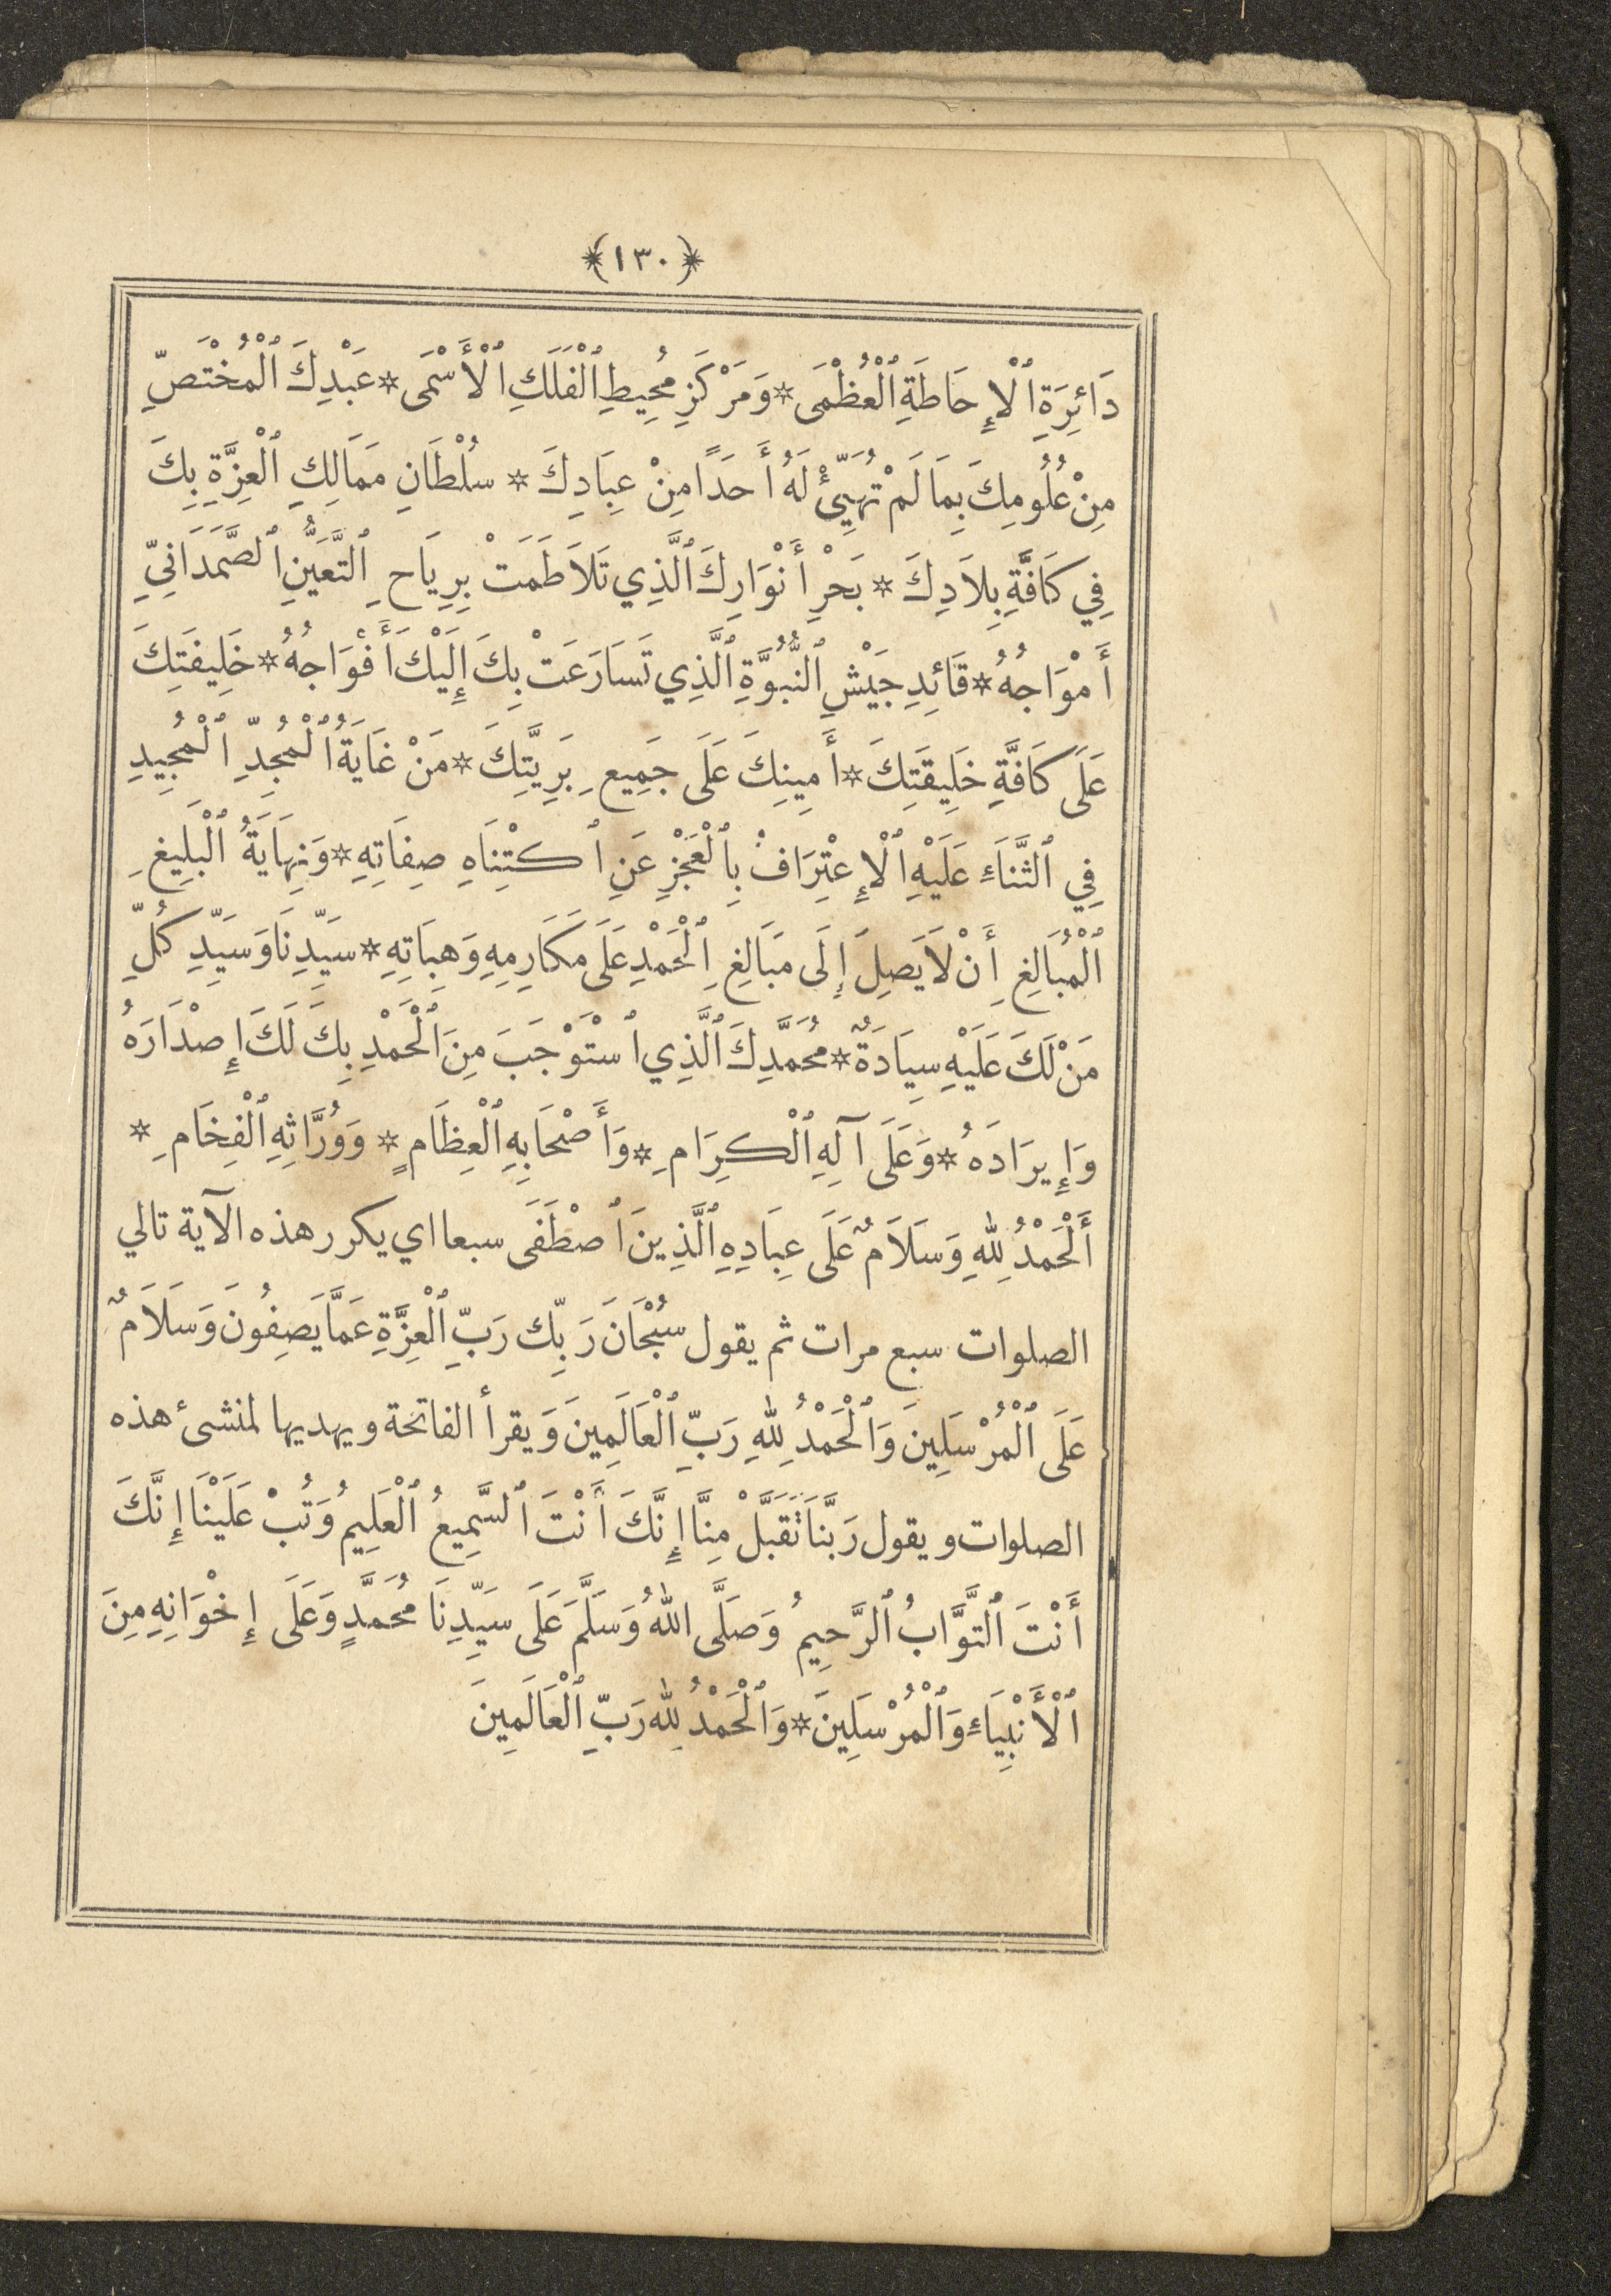 ﴿١٣٠﴾
دَائِرَةِ ٱلْإِحَاطَةِ ٱلْعُظْمَى * وَمَرْكَزِ مُحِيطِ ٱلْفَلَكِ ٱلْأَسْمَى * عَبْدِكَ ٱلْمُخْتَصِّ
مِنْ عُلُومِكَ بِمَا لَمْ تُهَيِّئْ لَهُ أَحَدًا مِنْ عِبَادِكَ * سُلْطَانِ مَمَالِكِ ٱلْعِزَّةِ بِكَ
فِي كَافَّةِ بِلَادِكَ * بَحْرِ أَنْوَارِكَ ٱلَّذِي تَلَاطَمَتْ بِرِيَاحِ ٱلتَّعَيُّنِ ٱلصَّمَدَانِيِّ
أَمْوَاجُهُ * قَائِدِ جَيْشِ ٱلنُّبُوَّةِ ٱلَّذِي تَسَارَعَتْ بِكَ إِلَيْكَ أَفْوَاجُهُ * خَلِيفَتِكَ
عَلَى كَافَّةِ خَلِيقَتِكَ * أَمِينِكَ عَلَى جَمِيعِ بَرِيَّتِكَ * مَنْ غَايَةُ ٱلْمُجِدِّ ٱلْمُجِيدِ
فِي ٱلثَّنَاءِ عَلَيْهِ ٱلْإِعْتِرَافُ بِٱلْعَجْزِ عَنِ ٱكْتِنَاهِ صِفَاتِهِ * وَنِهَايَةُ ٱلْبَلِيغِ
ٱلْمُبَالِغِ أَنْ لَا يَصِلَ إِلَى مَبَالِغِ ٱلْحَمْدِ عَلَى مَكَارِمِهِ وَهِبَاتِهِ * سَيِّدِنَا وَسَيِّدِ كُلِّ
مَنْ لَكَ عَلَيْهِ سِيَادَةٌ * مُحَمَّدِكَ ٱلَّذِي ٱسْتَوْجَبَ مِنَ ٱلْحَمْدِ بِكَ لَكَ إِصْدَارَهُ
وَإِيرَادَهُ * وَعَلَى آلِهِ ٱلْكِرَامِ * وَأَصْحَابِهِ ٱلْعِظَامِ * وَوُرَّاثِهِ ٱلْفِخَامِ *
أَلْحَمْدُ لِلهِ وَسَلَامٌ عَلَى عِبَادِهِ ٱلَّذِينَ ٱصْطَفَى سبعا اي يكرر هذه الآية تالي
الصلوات سبع مرات ثم يقول سُبْحَانَ رَبِّكَ رَبِّ ٱلْعِزَّةِ عَمَّا يَصِفُونَ وَسَلَامٌ
عَلَى ٱلْمُرْسَلِينَ وَٱلْحَمْدُ لِلهِ رَبِّ ٱلْعَالَمِينَ وَيقرأ الفاتحة ويهديها لمنشئ هذه
الصلوات ويقول رَبَّنَا تَقَبَّلْ مِنَّا إِنَّكَ أَنْتَ ٱلسَّمِيعُ ٱلْعَلِيمُ وَتُبْ عَلَيْنَا إِنَّكَ
أَنْتَ ٱلتَّوَّابُ ٱلرَّحِيمُ وَصَلَّى اللهُ وَسَلَّمَ عَلَى سَيِّدِنَا مُحَمَّدٍ وَعَلَى إِخْوَانِهِ مِنَ
ٱلْأَنْبِيَاءِ وَٱلْمُرْسَلِينَ * وَٱلْحَمْدُ لِلهِ رَبِّ ٱلْعَالَمِينَ